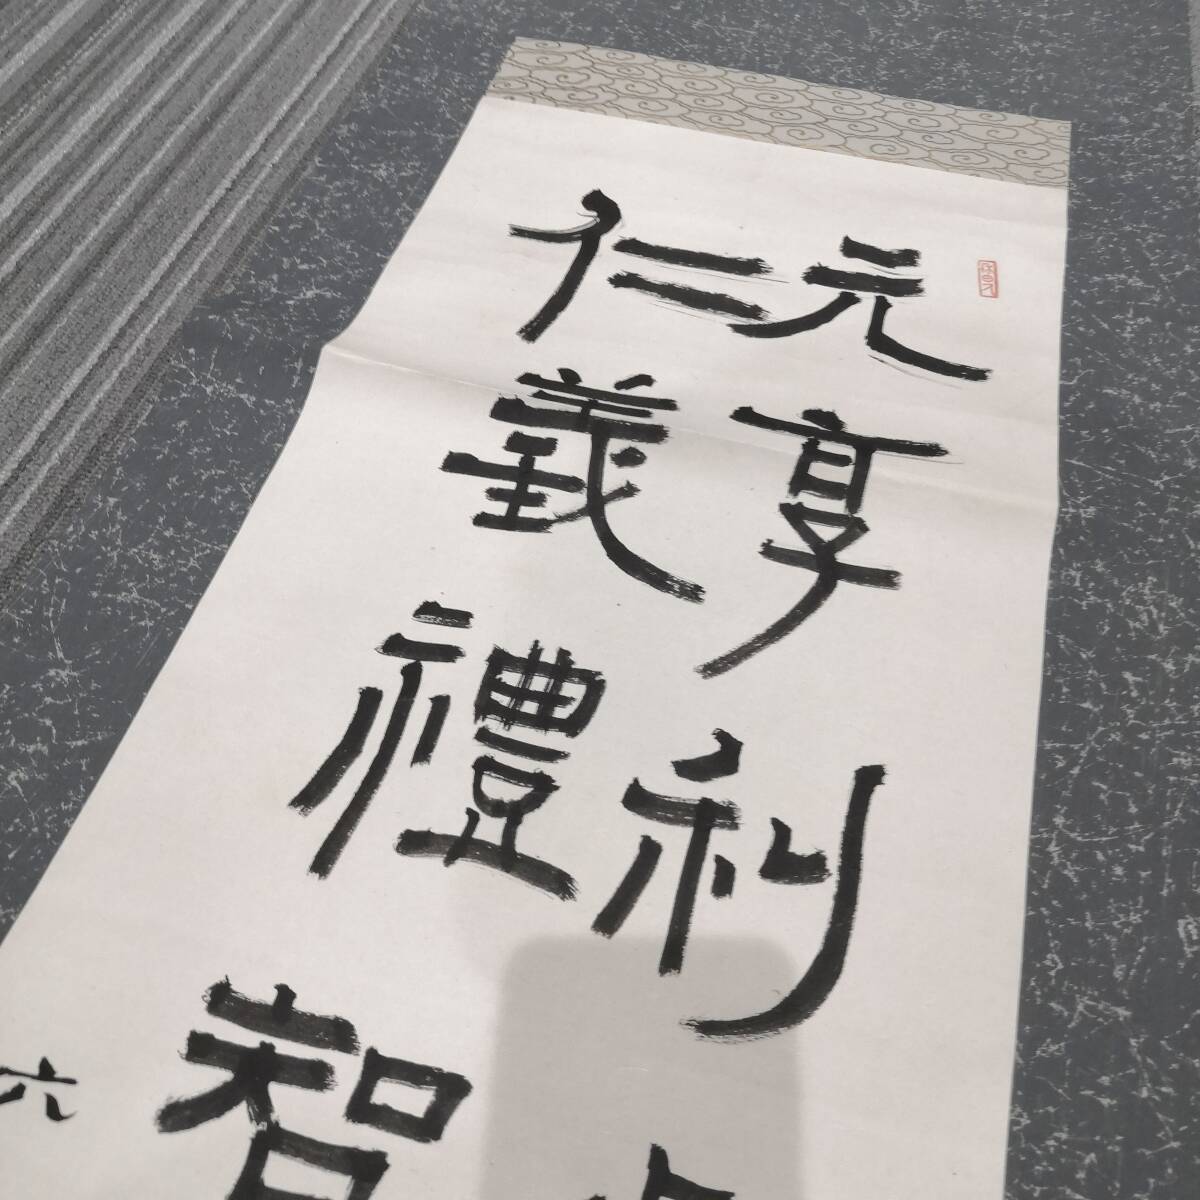 元亨利
仁義禮智
六